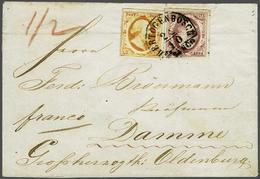 1/2
HERTOGENBOSCH
Herrn
Ferd: Brönmann
franco
Damme
Großherzogth. Oldenburg